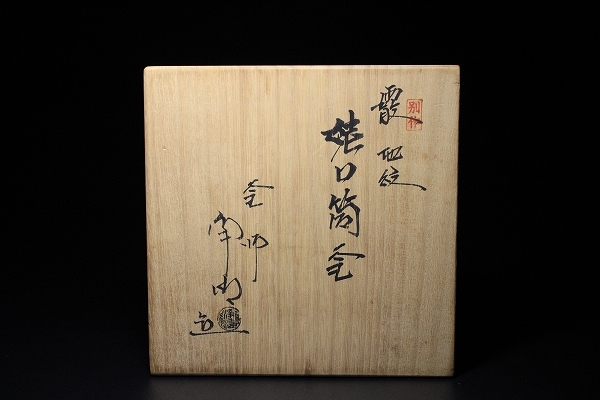 別作
霰地紋
姥口筒釜
釜師
造